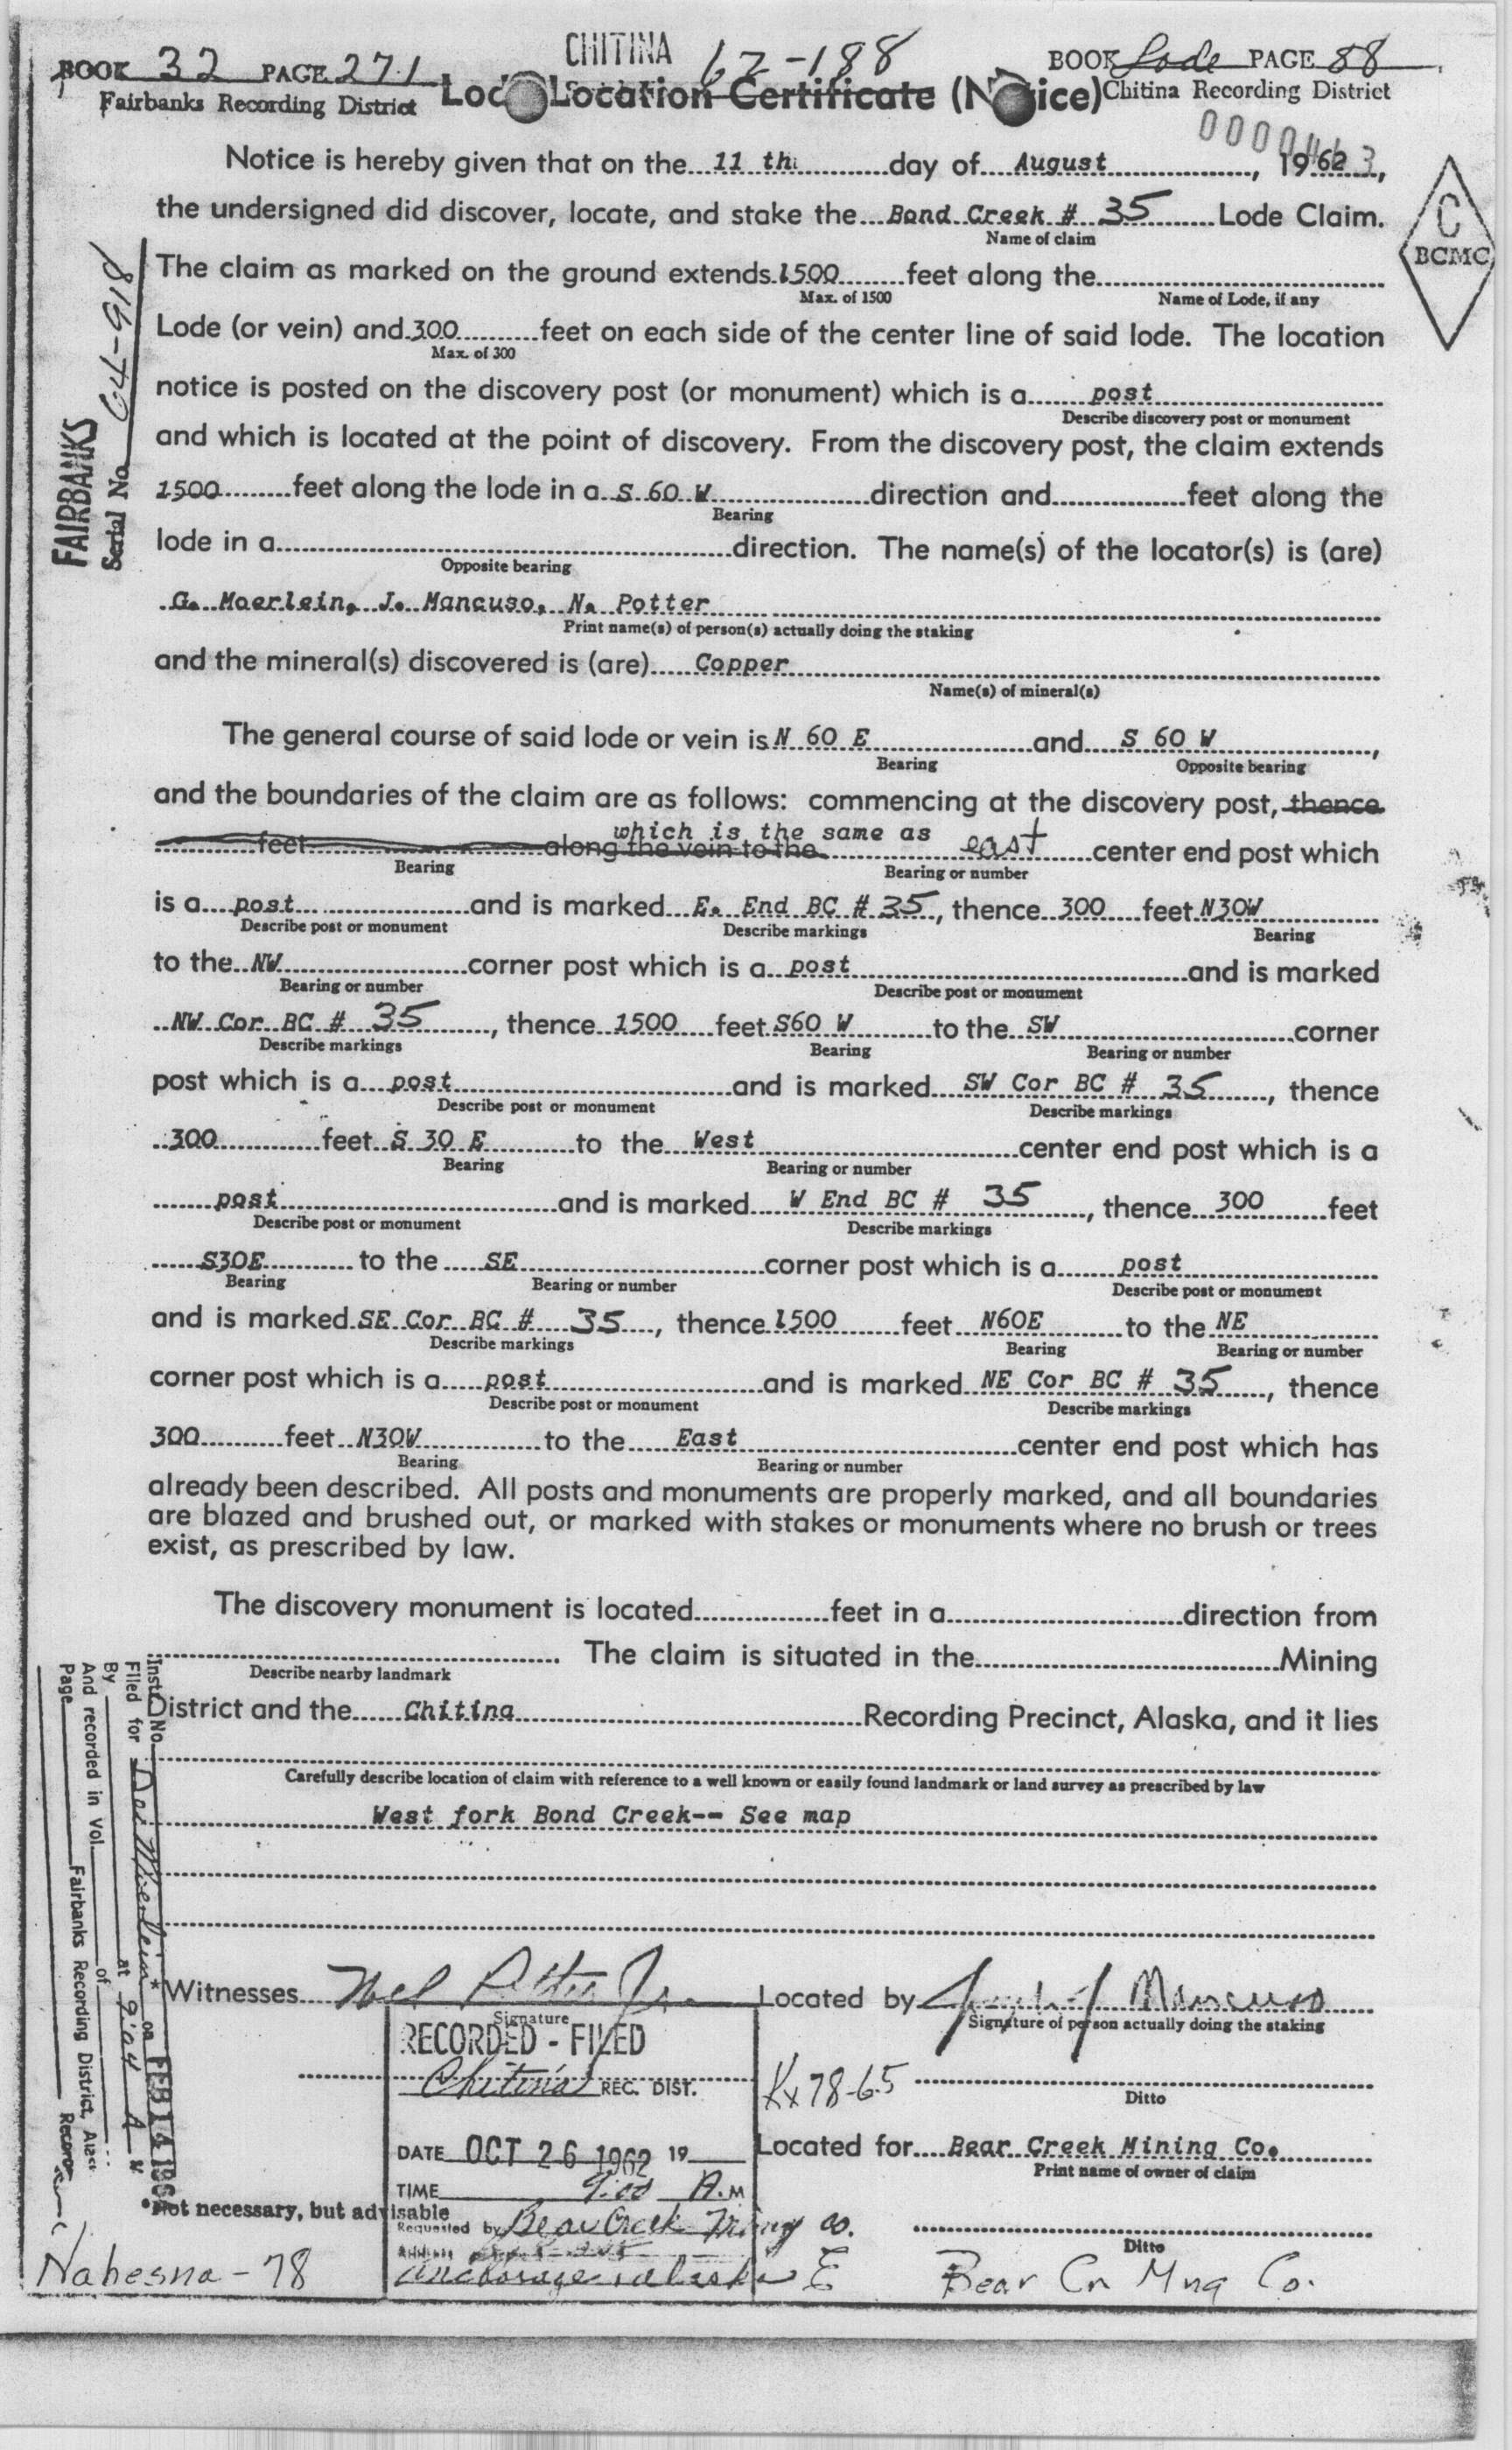 BOOK 32 PAGE 271
Fairbanks Recording District
CHITINA 62-188
BOOK Lode PAGE 88
Chitina Recording District
Location Certificate
Notice is hereby given that on the 11 th day of August, 1962,
the undersigned did discover, locate, and stake the Bond Creek # 35 Lode Claim.
Name of claim
C
BCMC
The claim as marked on the ground extends 1500 feet along the
Max. of 1500 Name of Lode, if any
Lode (or vein) and 300 feet on each side of the center line of said lode. The location
Max. of 300
notice is posted on the discovery post (or monument) which is a post
Describe discovery post or monument
and which is located at the point of discovery. From the discovery post, the claim extends
1500 feet along the lode in a S 60 W direction and feet along the
Bearing
lode in a direction. The name(s) of the locator(s) is (are)
Opposite bearing
G. Moerlein, J. Mancuso, N. Potter
Print name(s) of person(s) actually doing the staking
and the mineral(s) discovered is (are) Copper
Name(s) of mineral(s)
FAIRBANKS
Serial No. 64-918
The general course of said lode or vein is N 60 E and S 60 W,
Bearing Opposite bearing
and the boundaries of the claim are as follows: commencing at the discovery post, thence
which is the same as
feet along the vein to the east center end post which
Bearing Bearing or number
is a post and is marked E. End BC # 35, thence 300 feet N30W
Describe post or monument Describe markings Bearing
to the NW corner post which is a post and is marked
Bearing or number Describe post or monument
NW Cor BC # 35, thence 1500 feet S60 W to the SW corner
Describe markings Bearing Bearing or number
post which is a post and is marked SW Cor BC # 35, thence
Describe post or monument Describe markings
300 feet S 30 E to the West center end post which is a
Bearing Bearing or number
post and is marked W End BC # 35, thence 300 feet
Describe post or monument Describe markings
S30E to the SE corner post which is a post
Bearing Bearing or number Describe post or monument
and is marked SE Cor BC # 35, thence 1500 feet N60E to the NE
Describe markings Bearing Bearing or number
corner post which is a post and is marked NE Cor BC # 35, thence
Describe post or monument Describe markings
300 feet N30W to the East center end post which has
Bearing Bearing or number
already been described. All posts and monuments are properly marked, and all boundaries
are blazed and brushed out, or marked with stakes or monuments where no brush or trees
exist, as prescribed by law.
The discovery monument is located feet in a direction from
. The claim is situated in the Mining
Describe nearby landmark
District and the Chitina Recording Precinct, Alaska, and it lies
Carefully describe location of claim with reference to a well known or easily found landmark or land survey as prescribed by law
West fork Bond Creek-- See map
Inst. No.
Filed for
on FEB 14
By at 9:04 A M
And recorded in Vol. of
Page Fairbanks Recording District,
*Witnesses Noel Potter Jr. Located by Joseph J Mancuso
Signature Signature of person actually doing the staking
RECORDED - FILED
Chitina REC. DIST.
Kx 78-65
Ditto
DATE OCT 26 1962 19
Located for Bear Creek Mining Co.
Print name of owner of claim
TIME 9:00 A.M
*Not necessary, but advisable
Requested by Bear Creek Mining Co.
Ditto
Address
Anchorage Alaska
E
Nabesna - 78
Bear Cr Mng Co.